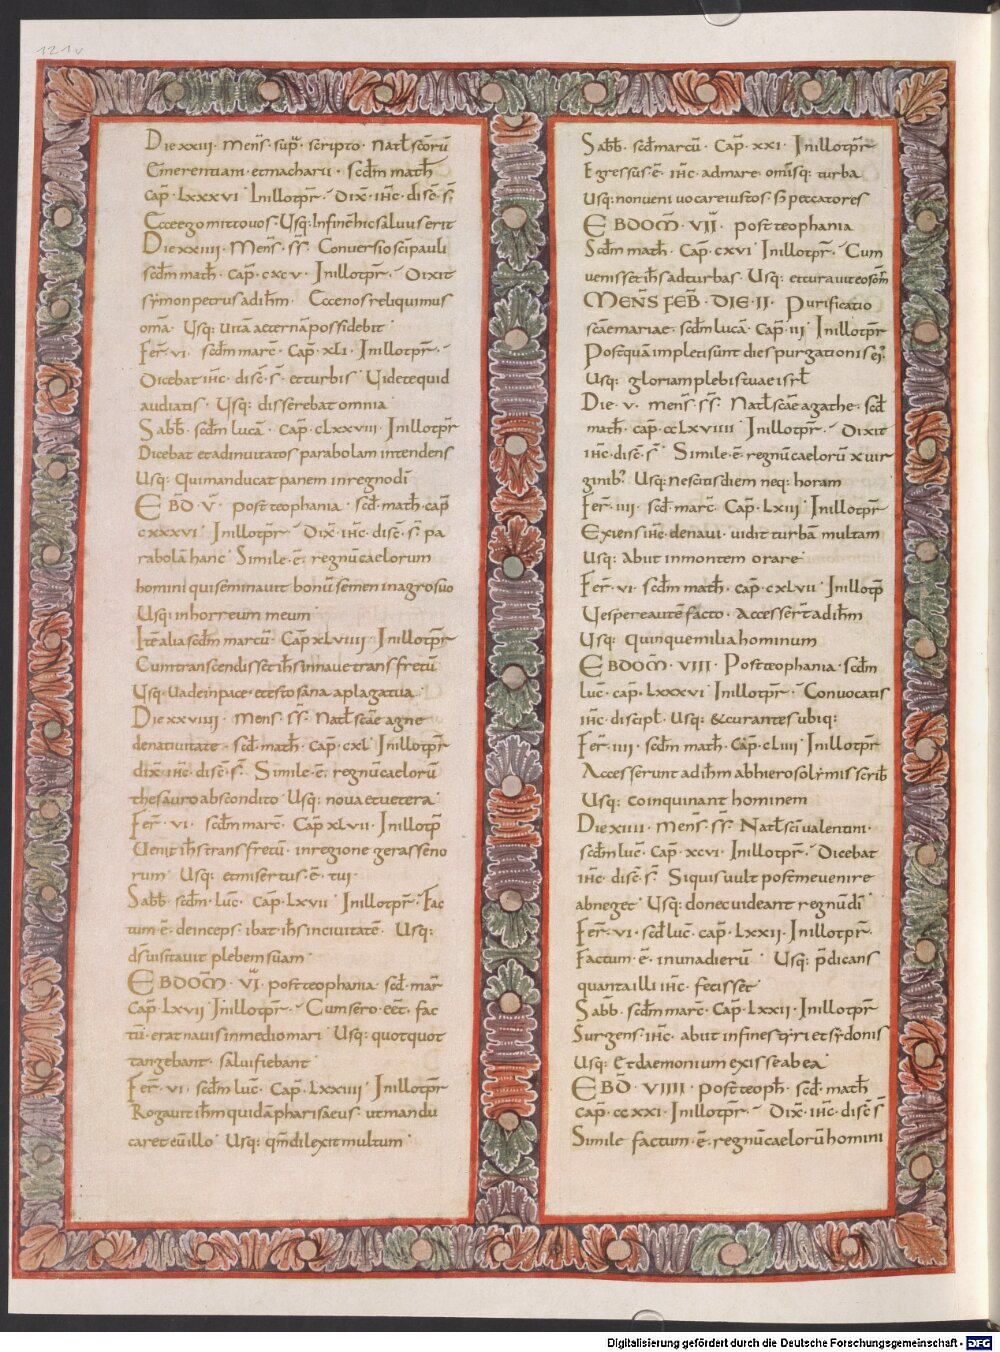 121v
Die xxiii · mens̄ · sup̄ · scripto · Natl̄ sc̄orū
Emerentiam · et macharii · Scdm̄ math̄
cap̄ · Lxxxvi · Inillotpr̄ · Dix̄ · ih̄c · disc̄ · s̄
Ecce ego mitto vos · Usq: In fine hic saluus erit
Die xxiiii · Mens̄ · ss̄ · Conuersio sc̄i pauli
scdm̄ math̄ · Cap̄ · cxcv · Inillotpr̄ · Dixit
symon petrus ad ih̄m · Ecce nos reliquimus
omā · Usq: uitā aeternā possidebit
Fer̄ · vi · scdm̄ marc̄ · Cap̄ · xLi · Inillotpr̄ ·
Dicebat ih̄c · disc̄ · s̄ · et turbis · Uidete quid
audiatis · Usq: disserebat omnia
Sabb̄ · scdm̄ lucā · Cap̄ · cLxxviii · Inillotpr̄
Dicebat et ad inuitatos parabolam intendens
Usq: Qui manducat panem in regno dī
EBD̄ · V̄ · post teophania · scd̄ · math̄ · cap̄
cxxxvi · Inillotpr̄ · Dix̄ · ih̄c · disc̄ · s̄ · pa
rabolā hanc · Simile · ē · regnū caelorum
homini qui seminauit bonū semen in agro suo
Usq: in horreum meum
Itē alia scdm̄ marcū · Cap̄ xLviiii · Inillotpr̄
Cum transcendisset ih̄s in naue trans fretū
Usq: Uade in pace · et esto sāna a plaga tua
Die xxviiii · Mens̄ · ss̄ · Natl̄ scāe agne
de natiuitate · scd̄ · math̄ · Cap̄ · cxL · Inillotpr̄
dix̄ · ih̄c · disc̄ · s̄ · Simile · ē · regnū caelorū
thesauro abscondito · Usq: noua et uetera
Fer̄ · vi · scdm̄ marc̄ · Cap̄ xLvii · Inillotp̄
Uenit ih̄s trans fretū · in regione gerasseno
rum · Usq: et misertus · ē · tui
Sabb̄ · scdm̄ · luc̄ · Cap̄ · Lxvii · Inillotpr̄ · Fac
tum · ē · deinceps · ibat ih̄s in ciuitatē · Usq:
ds̄ uisitauit plebem suam
EBDOM̄ · VI · post teophania · scd̄ · mar̄
Cap̄ · Lxvii · Inillotpr̄ · Cum sero · eēt · fac
tū · erat nauis in medio mari · Usq: quotquot
tangebant · salui fiebant
Fer̄ · vi · scdm̄ luc̄ · Cap̄ · Lxxiiii · Inillotpr̄
Rogauit ih̄m quidā pharisaeus · ut mandu
caret cū illo · Usq: qm̄ dilexit multum
Sabb̄ · scdm̄ marcū · Cap̄ · xxi · Inillotpr̄
Egressus · ē · ih̄c · ad mare · omīsq: turba
Usq: non ueni uocare iustos · s̄ peccatores
EBDOM̄ · VII · post teophania
Scdm̄ math̄ · Cap̄ · cxvi · Inillotpr̄ · Cum
uenisset ih̄s ad turbas · Usq: et curauit eos om̄
MENS FEB̄ · DIE · II · Purificatio
scāe mariae · scdm̄ lucā · Cap̄ · iij · Inillotpr̄
Postquā impleti sunt dies purgationis ej
Usq: gloriam plebis tuae isrl̄
Die · v · mens̄ · ss̄ · Natl̄ scāe agathe · scd̄
math̄ · cap̄ · ccLxviiii · Inillotpr̄ · Dixit
ih̄c · disc̄ · s̄ · Simile · ē · regnū caelorū x uir
ginib: Usq: nescitis diem neq: horam
Fer̄ · iiii · scd̄ · marc̄ · Cap̄ · Lxiij · Inillotpr̄
Exiens ih̄c · de naui · uidit turbā multam
Usq: abiit in montem orare
Fer̄ · vi · scdm̄ math̄ · cap̄ · cxLvii · Inillotp̄
Uespere autē facto · Accessert̄ ad ih̄m
Usq: quinque milia hominum
EBDOM̄ · VIII · Post teophania · scdm̄
luc̄ · cap̄ · Lxxxvi · Inillotpr̄ · Conuocatis
ih̄c · discipl̄ · Usq: & curantes ubiq:
Fer̄ · iiii · scdm̄ math̄ · Cap̄ · cLiiii · Inillotpr̄
Accesserunt ad ih̄m ab hierosolymis scrib̄
Usq: coinquinant hominem
Die xiiii · Mens̄ · ss̄ · Natl̄ scī ualentini ·
scdm̄ luc̄ · Cap̄ · xcvi · Inillotpr̄ · Dicebat
ih̄c · disc̄ · s̄ · Si quis uult post me uenire
abneget · Usq: donec uideant regnū dī
Fer̄ · vi · scd̄ luc̄ · cap̄ · Lxxii · Inillotpr̄ ·
Factum · ē · in una dierū · Usq: p̄dicans
quanta illi ih̄c · fecisset
Sabb̄ · scdm̄ marc̄ · Cap̄ · Lxxii · Inillotpr̄
Surgens · ih̄c · abiit in fines tyri et sydonis
Usq: Et daemonium exisse ab ea
EBD̄ · VIIII · post teoph̄ · scd̄ · math̄
Cap̄ · ccxxi · Inillotpr̄ · Dix̄ · ih̄c · disc̄ s̄
Simile factum · ē · regnū caelorū homini
Digitalisierung gefördert durch die Deutsche Forschungsgemeinschaft - DFG